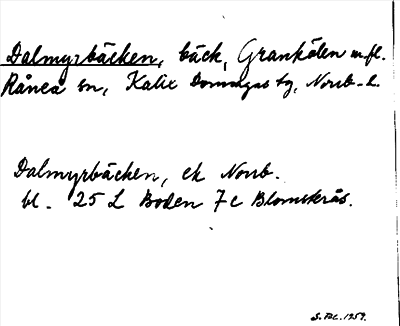 Dalmyrbäcken, bäck, Grankölen m.fl.
Råneå sn, Kalix Domsagas tg, Norrb. l.
Dalmyrbäcken, ek Norrb.
bl. 25 L Boden 7c Blomskrås.
S. Bl. 1959.